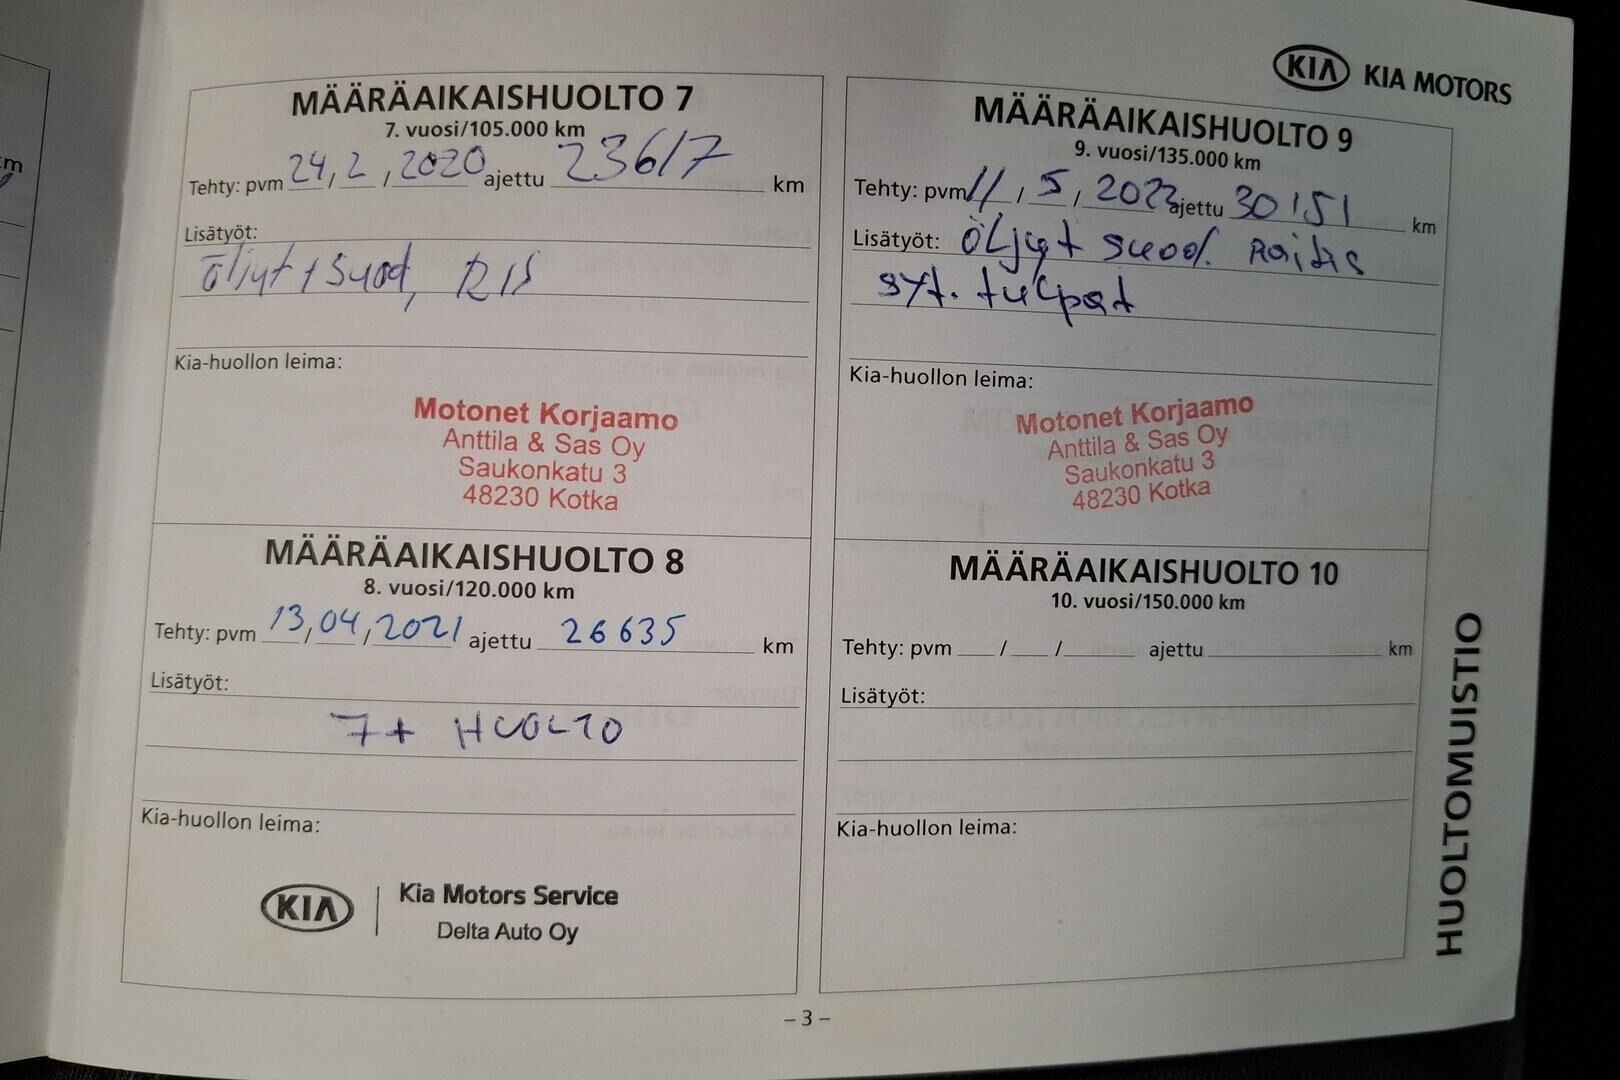 KIA KIA MOTORS
MÄÄRÄAIKAISHUOLTO 7
7. vuosi/105.000 km
Tehty: pvm 24/2/2020 ajettu 23617 km
Lisätyöt:
öljyt / suod,
Kia-huollon leima:
Motonet Korjaamo
Anttila & Sas Oy
Saukonkatu 3
48230 Kotka
MÄÄRÄAIKAISHUOLTO 8
8. vuosi/120.000 km
Tehty: pvm 13/04/2021 ajettu 26635 km
Lisätyöt:
7+ HUOLTO
Kia-huollon leima:
KIA Kia Motors Service
Delta Auto Oy
MÄÄRÄAIKAISHUOLTO 9
9. vuosi/135.000 km
Tehty: pvm 11/5/2022 ajettu 30151 km
Lisätyöt: öljyt suod. Raitis
syt. tulpat
Kia-huollon leima:
Motonet Korjaamo
Anttila & Sas Oy
Saukonkatu 3
48230 Kotka
MÄÄRÄAIKAISHUOLTO 10
10. vuosi/150.000 km
Tehty: pvm / / ajettu km
Lisätyöt:
Kia-huollon leima:
HUOLTOMUISTIO
– 3 –
km